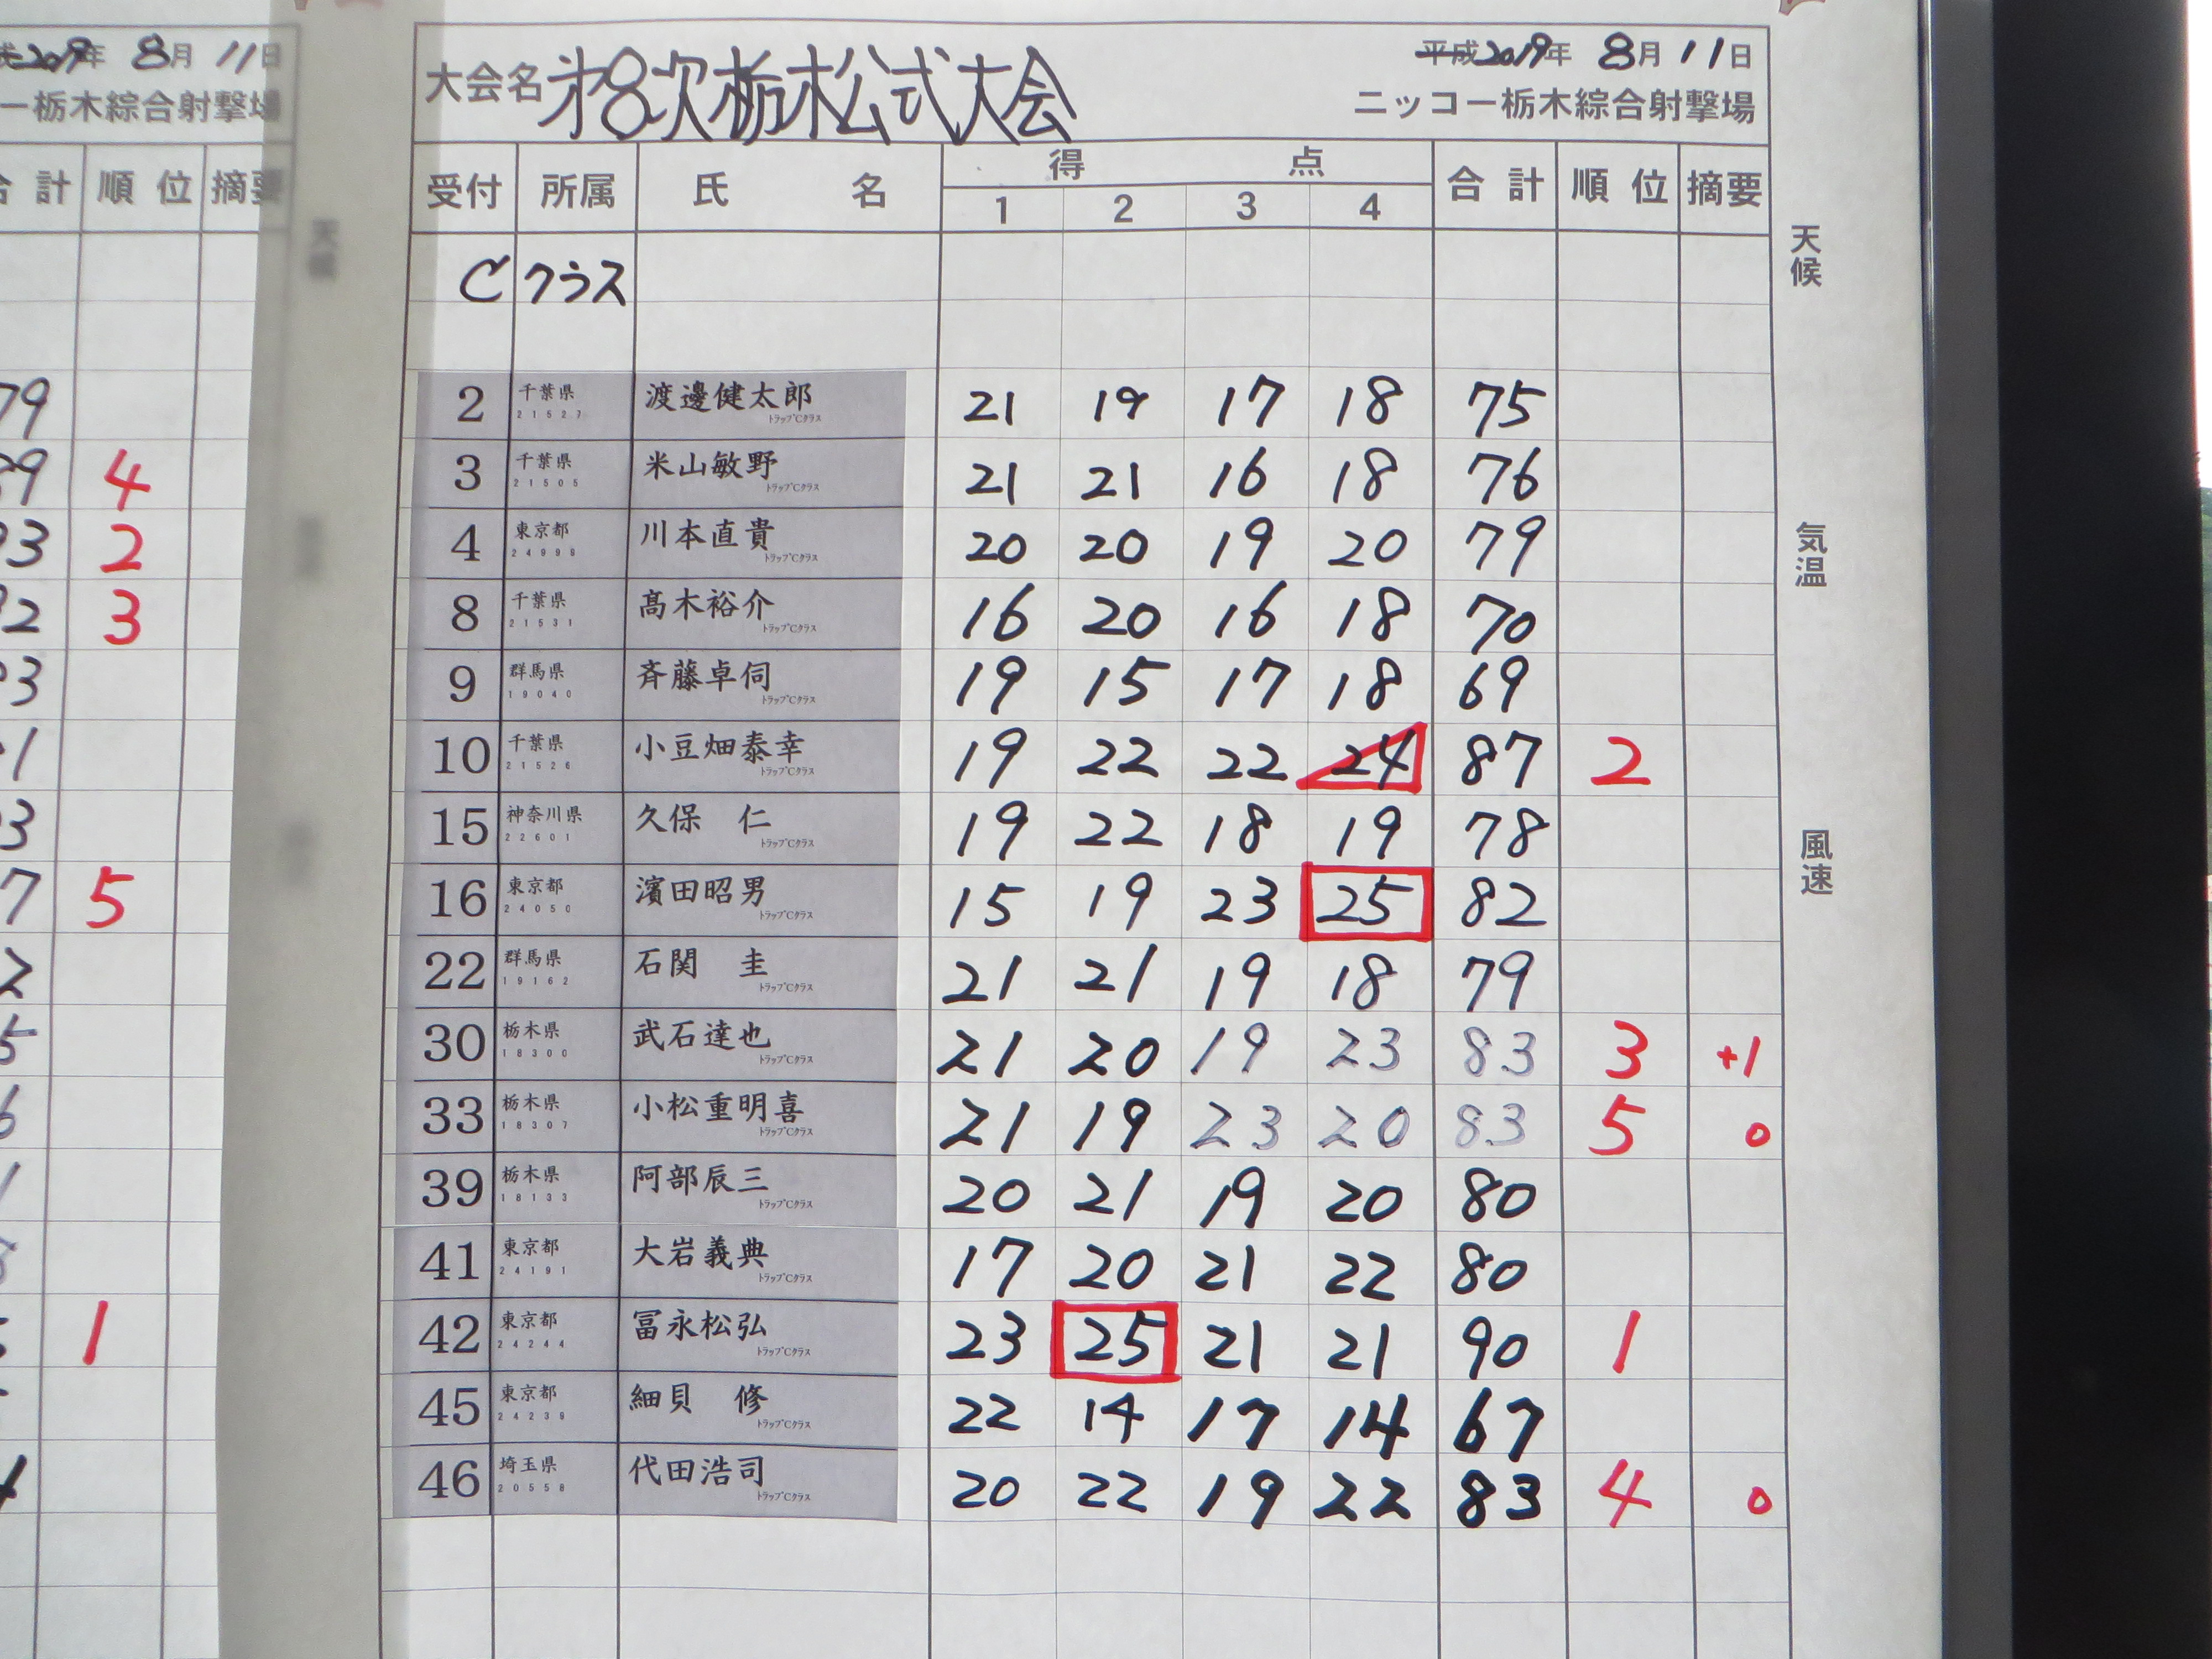 2019年 8月 11日
ー栃木綜合射撃場
計 順位 摘要
79
4
2
3
5
1
大会名 第8次栃木公式大会
平成2019年 8月 11日
ニッコー栃木綜合射撃場
受付 所属 氏名 得点 合計 順位 摘要
1 2 3 4
C クラス
2 千葉県 21527 渡邊健太郎 トラップCクラス 21 19 17 18 75
3 千葉県 21505 米山敏野 トラップCクラス 21 21 16 18 76
4 東京都 24998 川本直貴 トラップCクラス 20 20 19 20 79
8 千葉県 21531 髙木裕介 トラップCクラス 16 20 16 18 70
9 群馬県 19040 斉藤卓伺 トラップCクラス 19 15 17 18 69
10 千葉県 21526 小豆畑泰幸 トラップCクラス 19 22 22 24 87 2
15 神奈川県 22601 久保 仁 トラップCクラス 19 22 18 19 78
16 東京都 24050 濱田昭男 トラップCクラス 15 19 23 25 82
22 群馬県 19162 石関 圭 トラップCクラス 21 21 19 18 79
30 栃木県 18300 武石達也 トラップCクラス 21 20 19 23 83 3 +1
33 栃木県 18307 小松重明喜 トラップCクラス 21 19 23 20 83 5 0
39 栃木県 18133 阿部辰三 トラップCクラス 20 21 19 20 80
41 東京都 24191 大岩義典 トラップCクラス 17 20 21 22 80
42 東京都 24244 冨永松弘 トラップCクラス 23 25 21 21 90 1
45 東京都 24239 細貝 修 トラップCクラス 22 14 17 14 67
46 埼玉県 20558 代田浩司 トラップCクラス 20 22 19 22 83 4 0
天候
気温
風速